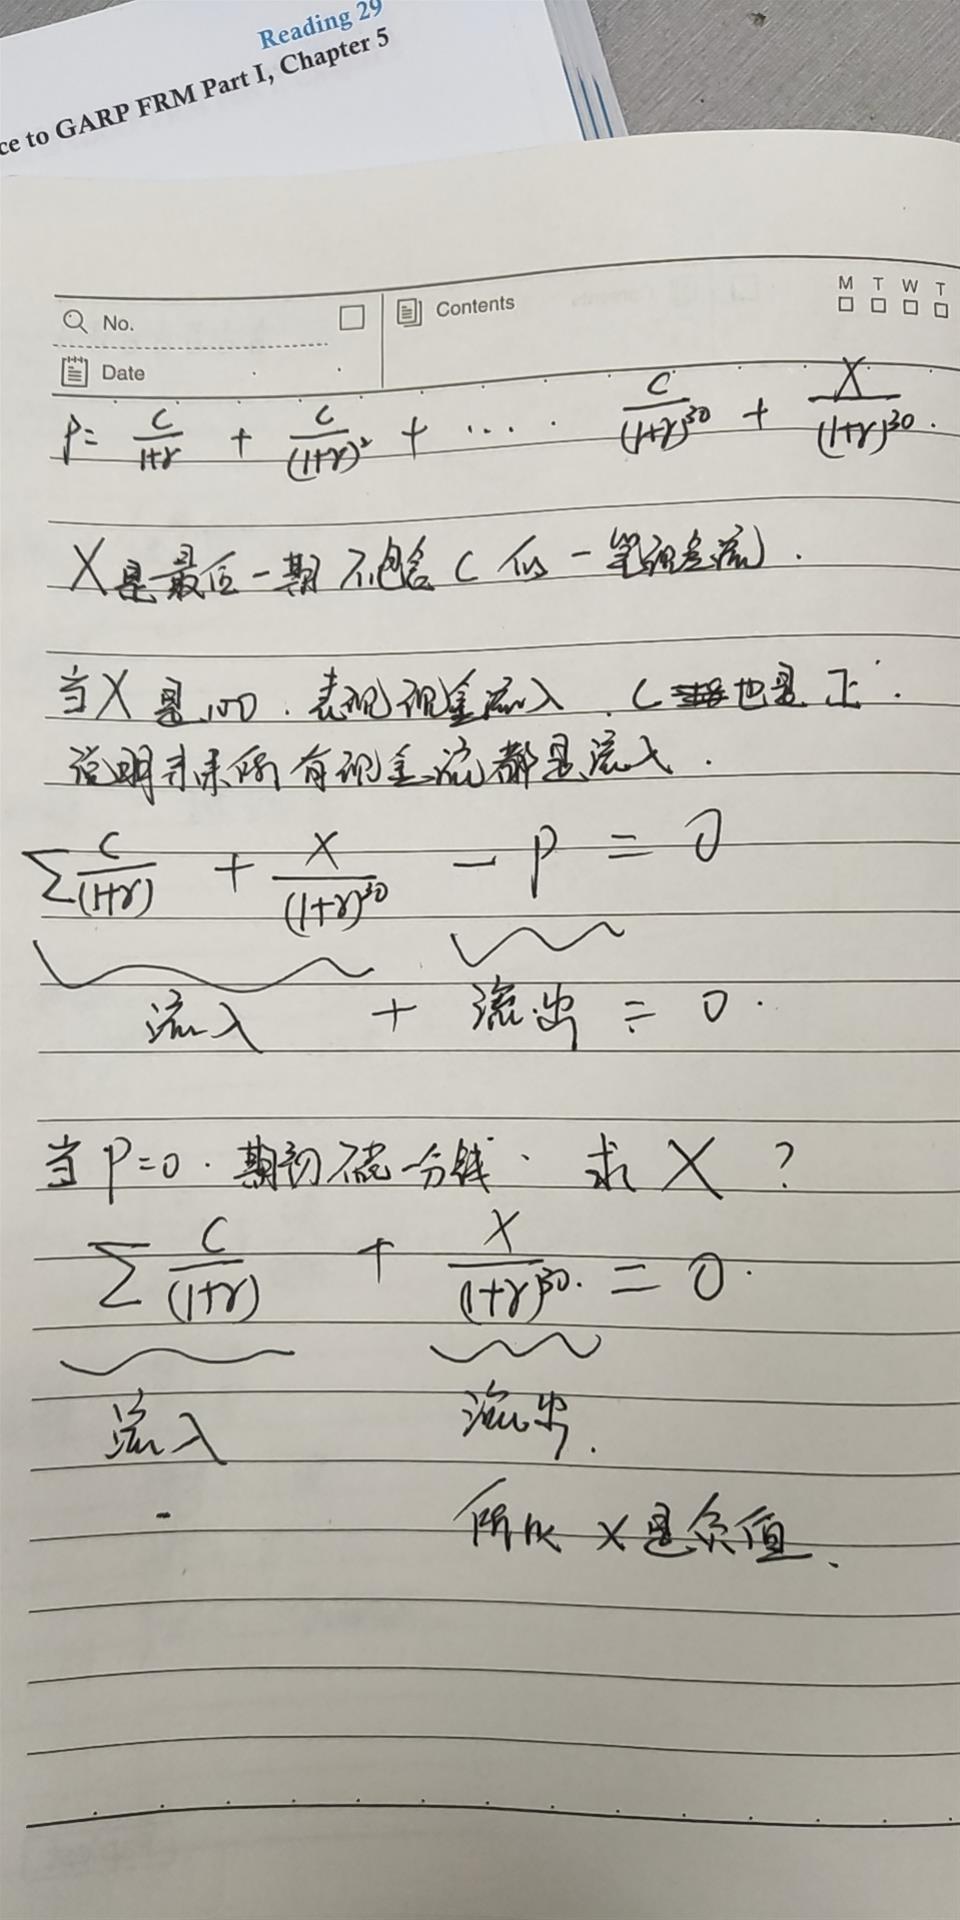 Reading 29
ce to GARP FRM Part I, Chapter 5
No.
Contents
M T W T
Date
P = C/(1+r) + C/(1+r)² + .... C/(1+r)³⁰ + X/(1+r)³⁰.
X是最后一期不包含C的一笔现金流).
当X是100.表现现金流入.C也是正.
说明未来所有现金流都是流入.
Σ C/(1+r) + X/(1+r)³⁰ - P = 0
流入 + 流出 = 0.
当P=0.期初不花一分钱.求X?
Σ C/(1+r) + X/(1+r)³⁰. = 0.
流入 流出.
所以X是负值.